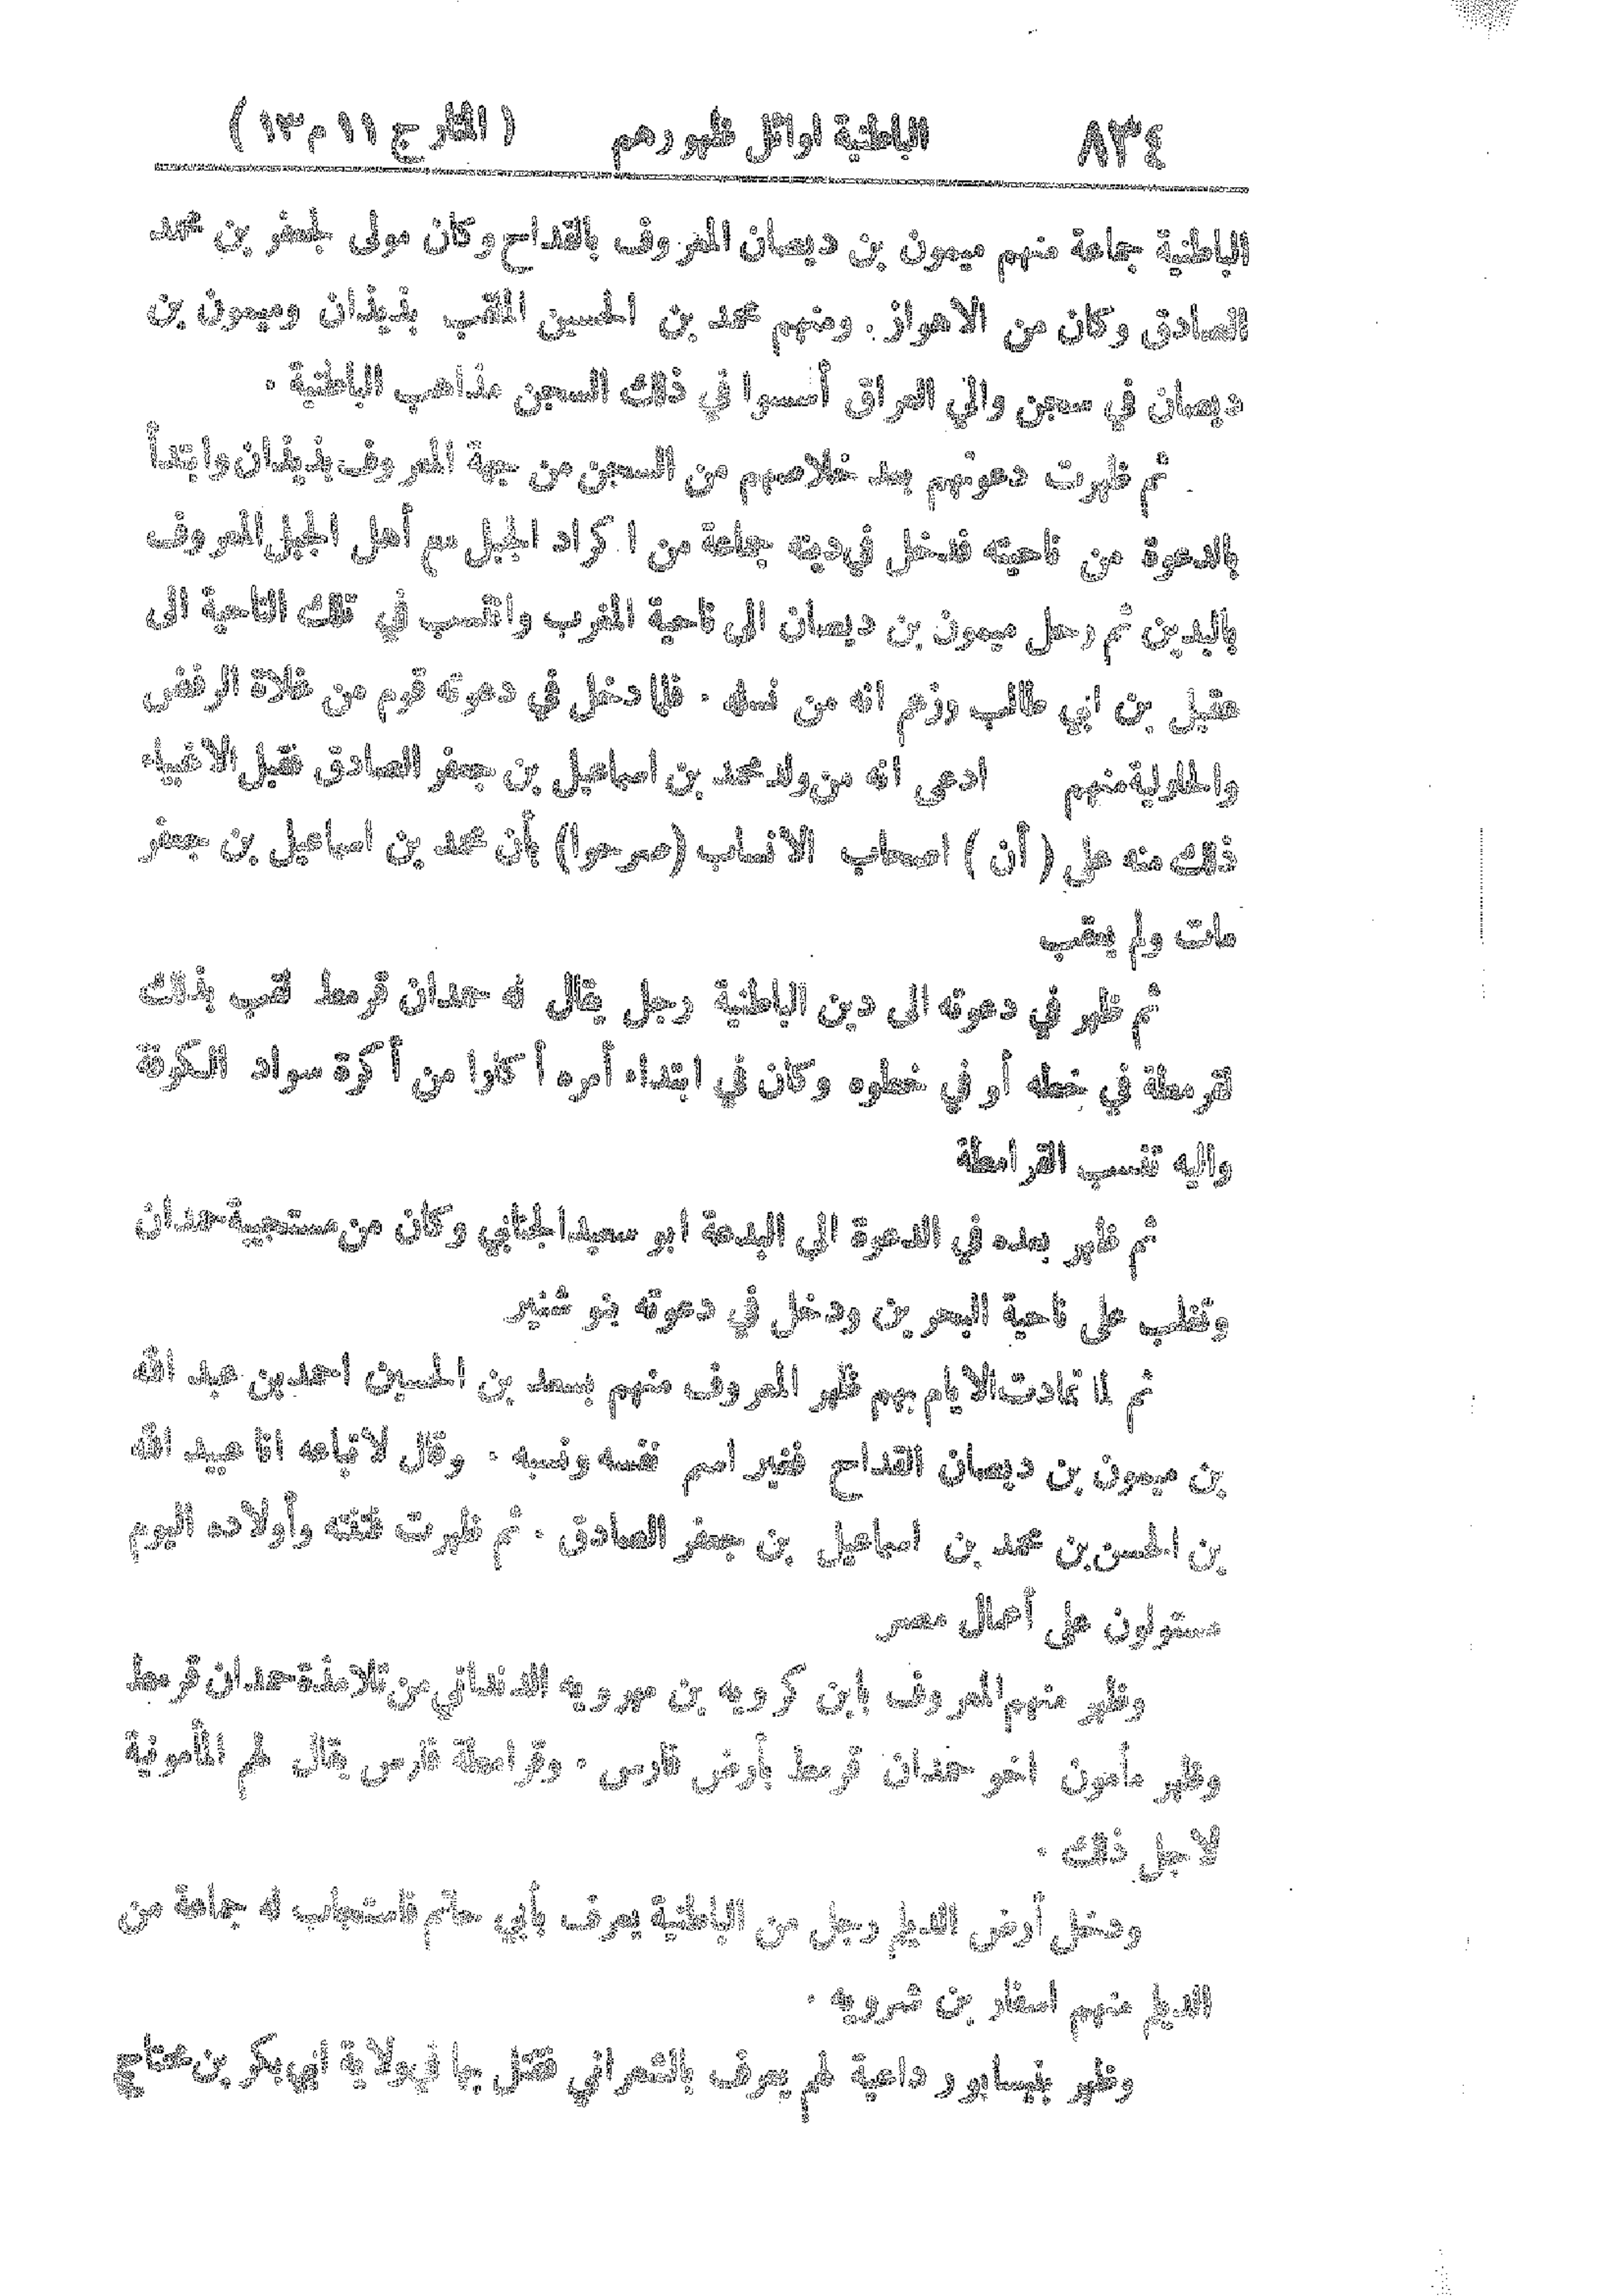 ٨٣٤ الباطنية اوائل ظهورهم ( المنار ج ١١ م ١٣ )
الباطنية جماعة منهم ميمون بن ديصان المعروف بالقداح وكان مولى لجعفر بن محمد
الصادق وكان من الاهواز . ومنهم محمد بن الحسين الملقب بذيذان وميمون بن
ديصان في سجن والي العراق أسسوا في ذلك السجن مذاهب الباطنية .
ثم ظهرت دعوتهم بعد خلاصهم من السجن من جهة المعروف بذيذان وابتدأ
بالدعوة من ناحيته فدخل في دينه جماعة من اكراد الجبل مع أهل الجبل المعروف
بالبدين ثم رحل ميمون بن ديصان الى ناحية المغرب وانتسب في تلك الناحية الى
عقيل بن ابي طالب وزعم انه من نسله . فلما دخل في دعوته قوم من غلاة الرفض
والحلولية منهم ادعى انه من ولد محمد بن اسماعيل بن جعفر الصادق فقبل الاغبياء
ذلك منه على ( أن ) اصحاب الانساب (صرحوا) بأن محمد بن اسماعيل بن جعفر
مات ولم يعقب
ثم ظهر في دعوته الى دين الباطنية رجل يقال له حمدان قرمط لقب بذلك
لقرمطة في خطه أو في خطوه وكان في ابتداء أمره أكارا من أكرة سواد الكوفة
واليه تنسب القرامطة
ثم ظهر بعده في الدعوة الى البدعة ابو سعيد الجنابي وكان من مستجيبة حمدان
وتغلب على ناحية البحرين ودخل في دعوته بنو شنبر
ثم لما تمادت الايام بهم ظهر المعروف منهم بسعد بن الحسين احمد بن عبد الله
بن ميمون بن ديصان القداح فغير اسم نفسه ونسبه . وقال لاتباعه انا عبيد الله
بن الحسن بن محمد بن اسماعيل بن جعفر الصادق . ثم ظهرت فتنته وأولاده اليوم
مستولون على أعمال مصر
وظهر منهم المعروف بابن كرويه بن مهرويه الدنداني من تلامذة حمدان قرمط
وظهر مأمون اخو حمدان قرمط بأرض فارس . وقرامطة فارس يقال لهم المأمونية
لاجل ذلك .
ودخل أرض الديلم رجل من الباطنية يعرف بأبي حاتم فاستجاب له جماعة من
الديلم منهم اسفار بن شرويه .
وظهر بنيسابور داعية لهم يعرف بالشعراني فقتل بها في ولاية ابي بكر بن محتاج